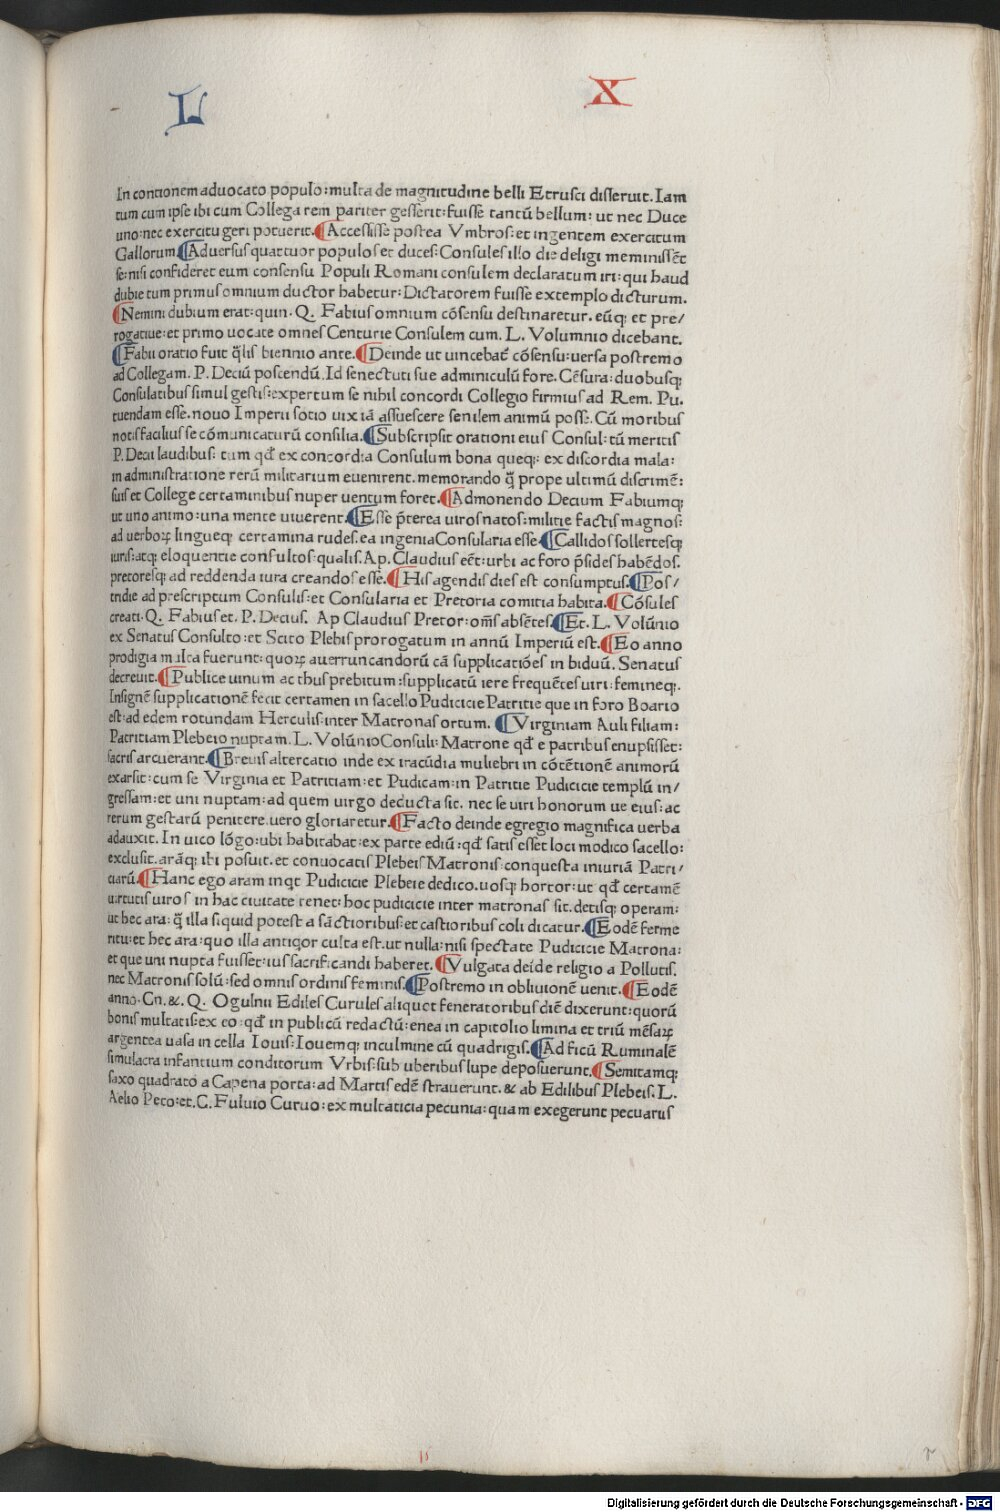 L X
In contionem aduocato populo: multa de magnitudine belli Etrusci disseruit. Iam
tum cum ipse ibi cum Collega rem pariter gesserit: fuisse tantū bellum: ut nec Duce
uno: nec exercitu geri potuerit. ¶Accessisse postea Vmbros: et ingentem exercitum
Gallorum ¶Aduersus quattuor populos et duces: Consules illo die deligi meminissēt
se: nisi confideret eum consensu Populi Romani consulem declaratum iri: qui haud
dubie tum primus omnium ductor habetur: Dictatorem fuisse extemplo dicturum.
¶Nemini dubium erat: quin. Q. Fabius omnium cōsensu destinaretur. eūq; et pre/
rogatiue: et primo uocate omnes Centurie Consulem cum. L. Volumnio dicebant.
¶Fabii oratio fuit q̄lis biennio ante. ¶Deinde ut uincebat̄ cōsensu: uersa postremo
ad Collegam. P. Deciū poscendū. Id senectuti sue adminiculū fore. Cēsura: duobusq;
Consulatibus simul gestis: expertum se nihil concordi Collegio firmius ad Rem. Pu.
tuendam esse. nouo Imperii sotio uix iā assuescere senilem animū posse. Cū moribus
notis facilius se cōmunicaturū consilia. ¶Subscripsit orationi eius Consul: tū meritis
P. Decii laudibus: tum qđ ex concordia Consulum bona queq;: ex discordia mala:
in administratione rerū militarium euenirent. memorando q̄ prope ultimū discrimē:
suis et College certaminibus nuper uentum foret. ¶Admonendo Decium Fabiumq;
ut uno animo: una mente uiuerent. ¶Esse p̄terea uiros natos: militie factis magnos:
ad uerboꝝ lingueq; certamina rudes. ea ingenia Consularia esse. ¶Callidos sollertesq;
iuris: atq; eloquentie consultos: qualis. Ap. Claudius eēt: urbi ac foro p̄sides habēdos.
pretoresq; ad reddenda iura creandos esse. ¶His agendis dies est consumptus. ¶Pos/
tridie ad prescriptum Consulis: et Consularia et Pretoria comitia habita. ¶Cōsules
creati. Q. Fabius et. P. Decius. Ap Claudius Pretor: om̄s absētes. ¶Et. L. Volūnio
ex Senatus Consulto: et Scito Plebis prorogatum in annū Imperiū est. ¶Eo anno
prodigia multa fuerunt: quoꝝ auerruncandorū cā supplicatiōes in biduū. Senatus
decreuit. ¶Publice uinum ac thus prebitum: supplicatū iere frequētes uiri: femineq;.
Insignē supplicationē fecit certamen in sacello Pudicicie Patritie que in foro Boario
est: ad edem rotundam Herculis: inter Matronas ortum. ¶Virginiam Auli filiam:
Patritiam Plebeio nuptam. L. Volūnio Consuli: Matrone qđ e patribus enupsisset:
sacris arcuerant. ¶Breuis altercatio inde ex iracūdia muliebri in cōtētionē animorū
exarsit: cum se Virginia et Patritiam: et Pudicam: in Patritie Pudicicie templū in/
gressam: et uni nuptam: ad quem uirgo deducta sit. nec se uiri honorum ue eius: ac
rerum gestarū penitere. uero gloriaretur. ¶Facto deinde egregio magnifica uerba
adauxit. In uico lōgo: ubi habitabat: ex parte ediū: qđ satis esset loci modico sacello:
exclusit. arāq; ibi posuit. et conuocatis Plebeis Matronis: conquesta iniuriā Patri/
ciarū. ¶Hanc ego aram inqt Pudicicie Plebeie dedico. uosq; hortor: ut qđ certamē
uirtutis uiros in hac ciuitate tenet: hoc pudicicie inter matronas sit. detisq; operam:
ut hec ara: q̄ illa siquid potest a sāctioribus: et castioribus coli dicatur. ¶Eodē ferme
ritu: et hec ara: quo illa antiqor culta est. ut nulla: nisi spectate Pudicicie Matrona:
et que uni nupta fuisset: ius sacrificandi haberet. ¶Vulgata deīde religio a Pollutis.
nec Matronis solū: sed omnis ordinis feminis. ¶Postremo in obliuionē uenit. ¶Eodē
anno. Cn. &. Q. Ogulnii Ediles Curules aliquot feneratoribus diē dixerunt: quorū
bonis multatis: ex eo: qđ in publicū redactū: enea in capitolio limina et triū mēsaꝝ
argentea uasa in cella Iouis: Iouemq; in culmine cū quadrigis. ¶Ad ficū Ruminalē
simulacra infantium conditorum Vrbis: sub uberibus lupe deposuerunt. ¶Semitamq;
saxo quadrato a Capena porta: ad Martis edē strauerunt. & ab Edilibus Plebeis. L.
Aelio Peto: et. C. Fuluio Curuo: ex multaticia pecunia: quam exegerunt pecuariis
Digitalisierung gefördert durch die Deutsche Forschungsgemeinschaft - DFG